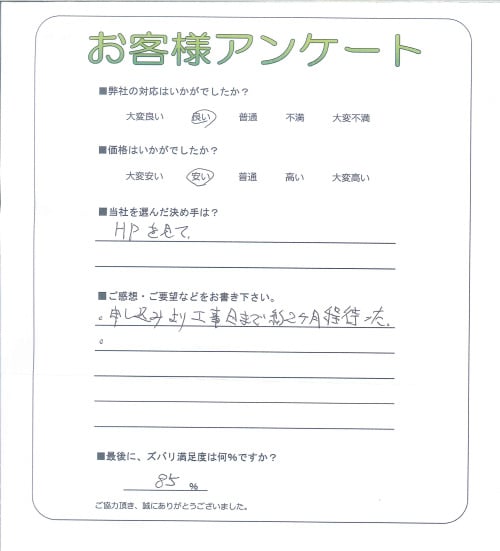 お客様アンケート
■弊社の対応はいかがでしたか？
大変良い 良い 普通 不満 大変不満
■価格はいかがでしたか？
大変安い 安い 普通 高い 大変高い
■当社を選んだ決め手は？
HPを見て、
■ご感想・ご要望などをお書き下さい。
。申し込みより工事日まで約2ヶ月程待った。
。
■最後に、ズバリ満足度は何％ですか？
85 %
ご協力頂き、誠にありがとうございました。